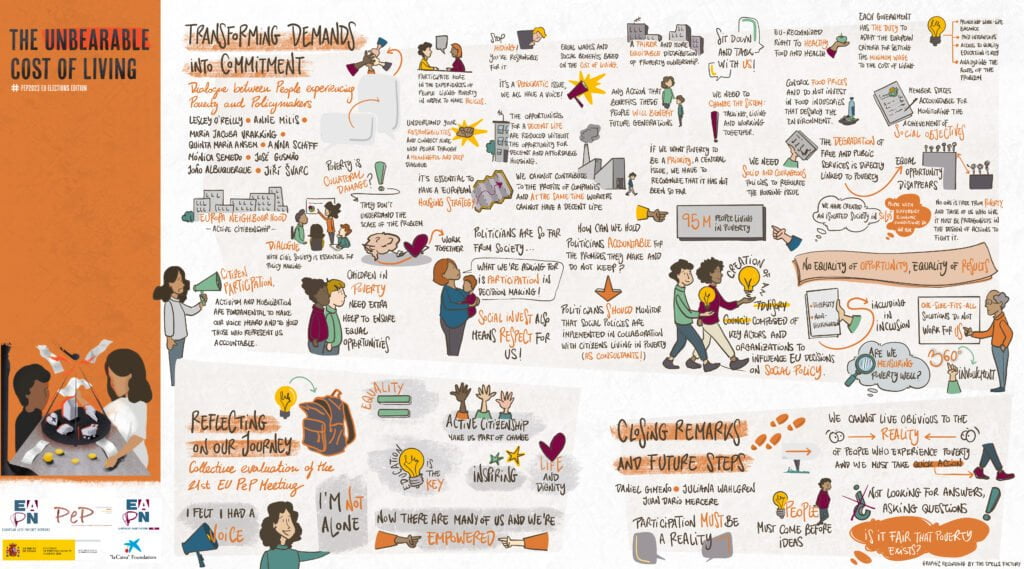 THE UNBEARABLE
COST OF LIVING
# PEP2023 EU ELECTIONS EDITION
EAPN
PeP
EAPN
"la Caixa" Foundation
TRANSFORMING DEMANDS
INTO COMMITMENT
Dialogue between People experiencing
Poverty and Policymakers
LESLEY O'REILLY • ANNIE MILIS
MARIA JACOBA VRAKKING
QUINTA MARIA ANSEM • ANNA SCHIFF
MÓNICA SEMEDO • JOSÉ GUSMÃO
JOÃO ALBUQUERQUE • JIŘÍ ŠVARC
PARTICIPATE MORE
IN THE EXPERIENCES
OF PEOPLE LIVING POVERTY
IN ORDER TO MAKE POLICIES.
STOP
HIDING!
YOU'RE RESPONSIBLE
FOR IT
EQUAL WAGES AND
SOCIAL BENEFITS BASED
ON THE COST OF LIVING.
A FAIRER AND MORE
EQUITABLE DISTRIBUTION
OF PROPERTY OWNERSHIP.
SIT DOWN
AND TABLE
WITH US!
EU-RECOGNIZED
RIGHT TO HEALTHY
FOOD AND HEALTH
EACH GOVERNMENT
HAS THE DUTY TO
ADAPT THE EUROPEAN
CRITERIA FOR SETTING
THE MINIMUM WAGE
TO THE COST OF LIVING
BALANCE
ACCESS TO
QUALITY
EDUCATION
ANALYZING THE
ROOTS OF THE
PROBLEM
UNDERSTAND YOUR
RESPONSIBILITIES
AND CONNECT MORE
WITH PEOPLE THROUGH
A MEANINGFUL AND DEEP
DIALOGUE
IT'S A DEMOCRATIC ISSUE,
WE ALL HAVE A VOICE!
ANY ACTION THAT
BENEFITS THESE
PEOPLE WILL BENEFIT
FUTURE GENERATIONS
WE NEED TO
CHANGE THE SYSTEM:
TALKING, LIVING
AND WORKING
TOGETHER.
CONTROL FOOD PRICES
AND DO NOT INVEST
IN FOOD INDUSTRIES
THAT DESTROY THE
ENVIRONMENT.
MEMBER STATES
ACCOUNTABLE FOR
MONITORING THE
ACHIEVEMENT OF
SOCIAL OBJECTIVES
THE OPPORTUNITIES
FOR A DECENT LIFE
ARE REDUCED WITHOUT
THE OPPORTUNITY FOR
DECENT AND AFFORDABLE
HOUSING.
POVERTY IS
COLLATERAL
DAMAGE?
IT'S ESSENTIAL TO
HAVE A EUROPEAN
HOUSING STRATEGY
WE CANNOT CONTRIBUTE
TO THE PROFITS OF COMPANIES
AND AT THE SAME TIME WORKERS
CANNOT HAVE A DECENT LIFE
IF WE WANT POVERTY TO
BE A PRIORITY, A CENTRAL
ISSUE, WE HAVE TO
RECOGNIZE THAT IT HAS NOT
BEEN SO FAR
WE NEED
SOLID AND COURAGEOUS
POLICIES TO REGULATE
THE HOUSING ISSUE.
THE DEGRADATION OF
FREE AND PUBLIC
SERVICES IS DIRECTLY
LINKED TO POVERTY
EQUAL
OPPORTUNITY
DISAPPEARS
EUROPA NEIGHBOURHOOD
– ACTIVE CITIZENSHIP –
DIALOGUE
WITH CIVIL SOCIETY IS ESSENTIAL FOR
POLICY MAKING
THEY DON'T
UNDERSTAND THE
SCALE OF THE PROBLEM
WORK
TOGETHER
95 M PEOPLE LIVING
IN POVERTY
WE HAVE CREATED
AN ISOLATED SOCIETY IN SILOS
NO ONE IS FREE FROM POVERTY
AND THOSE OF US WHO LIVE
IT MUST BE PROTAGONISTS IN
THE DESIGN OF ACTIONS TO
FIGHT IT.
CITIZEN
PARTICIPATION.
ACTIVISM AND MOBILIZATION
ARE FUNDAMENTAL TO MAKE
OUR VOICE HEARD AND TO HOLD
THOSE WHO REPRESENT US
ACCOUNTABLE.
CHILDREN IN
POVERTY
NEED EXTRA
HELP TO ENSURE
EQUAL
OPPORTUNITIES
POLITICIANS ARE SO FAR
FROM SOCIETY...
WHAT WE'RE ASKING FOR
IS PARTICIPATION IN
DECISION MAKING!
SOCIAL INVEST ALSO
MEANS RESPECT FOR
US!
HOW CAN WE HOLD
POLITICIANS ACCOUNTABLE FOR
THE PROMISES THEY MAKE AND
DO NOT KEEP?
POLITICIANS SHOULD MONITOR
THAT SOCIAL POLICIES ARE
IMPLEMENTED IN COLLABORATION
WITH CITIZENS LIVING IN POVERTY
(AS CONSULTANTS!)
CREATION OF AN
ADVISORY
COUNCIL COMPOSED OF
KEY ACTORS AND
ORGANIZATIONS TO
INFLUENCE EU DECISIONS
ON SOCIAL POLICY.
NO EQUALITY OF OPPORTUNITY, EQUALITY OF RESULTS
DIVERSITY
NON-
DISCRIMINATION
INCLUDING
IN INCLUSION
ONE-SIZE-FITS-ALL
SOLUTIONS DO NOT
WORK FOR US
ARE WE
MEASURING
POVERTY WELL?
360°
INVOLVEMENT
REFLECTING
ON OUR JOURNEY
Collective evaluation of the
21st EU PeP Meeting
I FELT I HAD A
VOICE
I'M NOT
ALONE
EQUALITY
EDUCATION
IS THE
KEY
ACTIVE CITIZENSHIP
MAKE US PART OF CHANGE
INSPIRING
LIFE
AND
DIGNITY
NOW THERE ARE MANY OF US AND WE'RE
EMPOWERED
CLOSING REMARKS
AND FUTURE STEPS
DANIEL GIMENO • JULIANA WAHLGREN
JUAN DARÍO MERCERE
PARTICIPATION MUST BE
A REALITY
PEOPLE
MUST COME BEFORE
IDEAS
WE CANNOT LIVE OBLIVIOUS TO THE
REALITY
OF PEOPLE WHO EXPERIENCE POVERTY
AND WE MUST TAKE QUICK ACTION
NOT LOOKING FOR ANSWERS,
ASKING QUESTIONS
IS IT FAIR THAT POVERTY
EXISTS?
GRAPHIC RECORDING BY THE SPELLS FACTORY